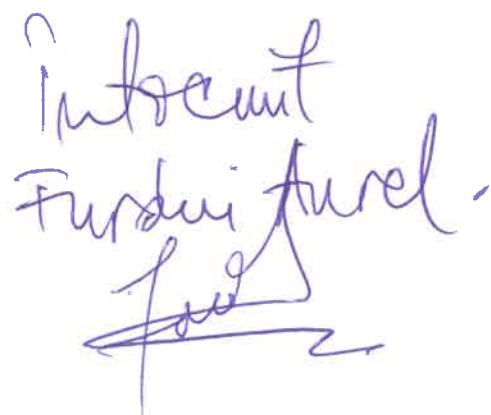 Întocmit
Furdui Aurel.